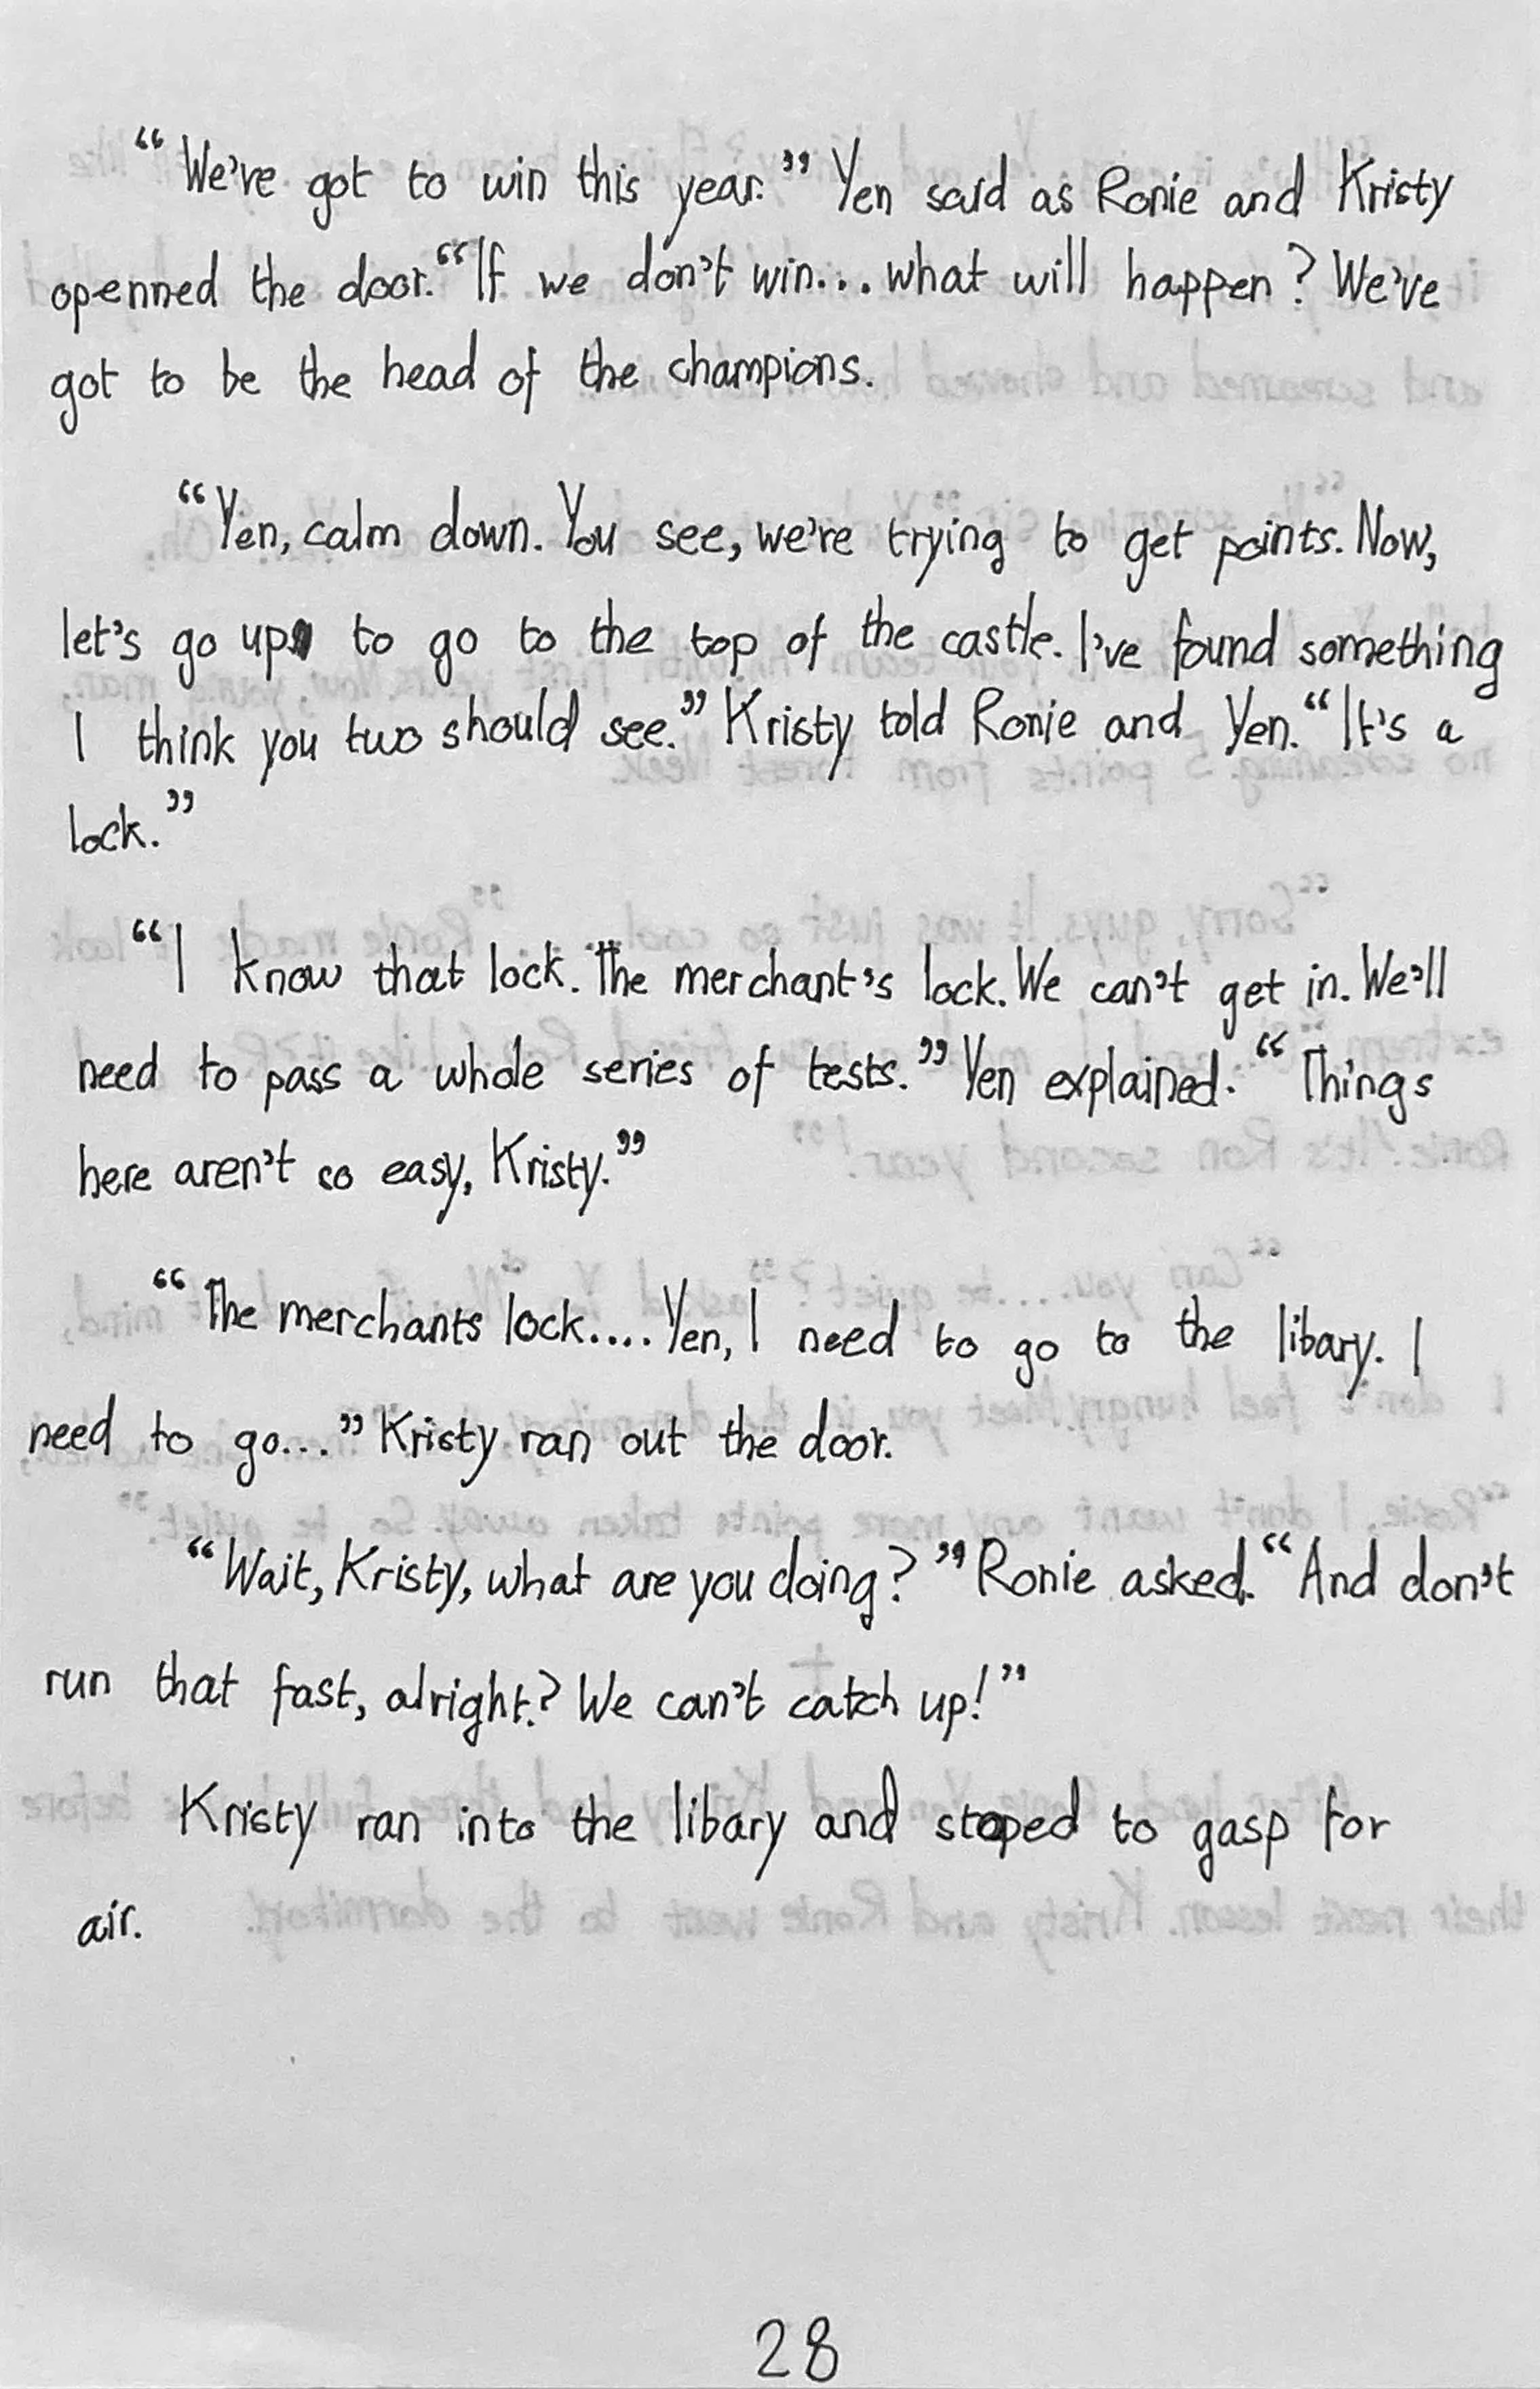 “We’ve got to win this year.” Yen said as Ronie and Kristy
openned the door. “If we don’t win... what will happen? We’ve
got to be the head of the champions.
“Yen, calm down. You see, we’re trying to get points. Now,
let’s go up to go to the top of the castle. I’ve found something
I think you two should see.” Kristy told Ronie and Yen. “It’s a
lock.”
“I know that lock. The merchant’s lock. We can’t get in. We’ll
need to pass a whole series of tests.” Yen explained. “Things
here aren’t so easy, Kristy.”
“The merchants lock.... Yen, I need to go to the libary. I
need to go...” Kristy ran out the door.
“Wait, Kristy, what are you doing?” Ronie asked. “And don’t
run that fast, alright? We can’t catch up!”
Kristy ran into the libary and stoped to gasp for
air.
28